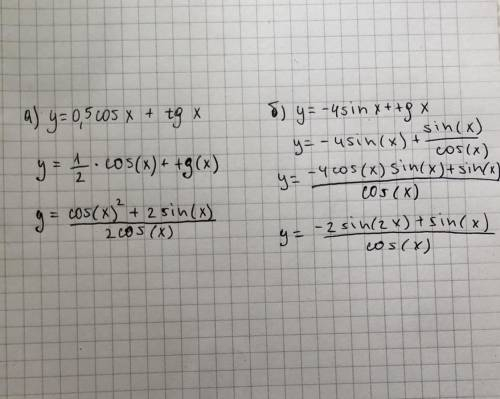 а) y = 0,5 cos x + tg x
y = 1/2 · cos(x) + tg(x)
y = (cos(x)² + 2 sin(x)) / (2cos(x))
б) y = -4 sin x + tg x
y = -4 sin(x) + sin(x)/cos(x)
y = (-4 cos(x) sin(x) + sin(x)) / cos(x)
y = (-2 sin(2x) + sin(x)) / cos(x)